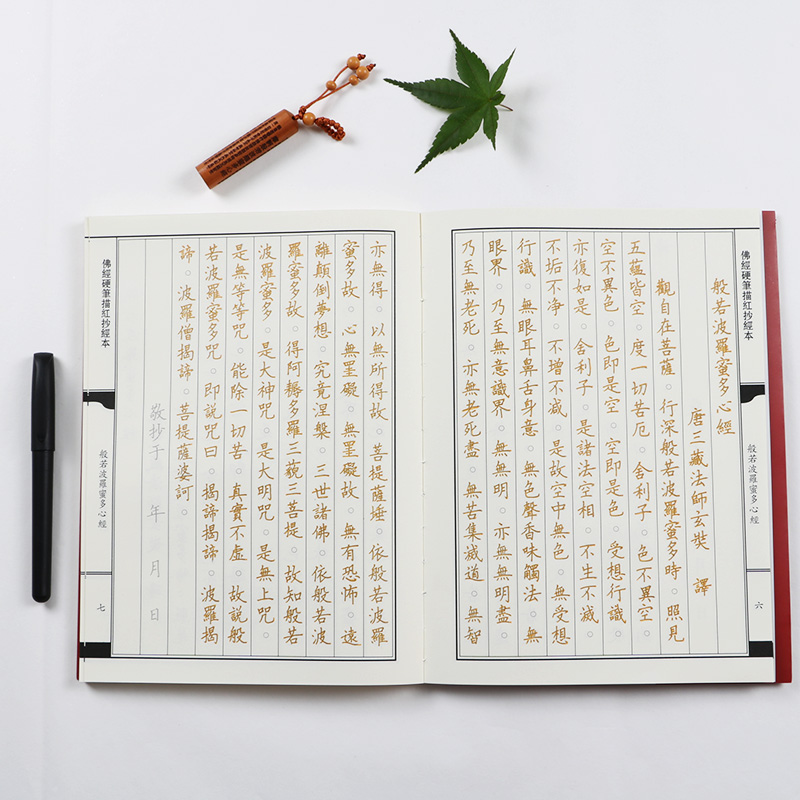 佛經硬筆描紅抄經本
般若波羅蜜多心經
六
般若波羅蜜多心經
唐三藏法師玄奘 譯
觀自在菩薩。行深般若波羅蜜多時。照見
五蘊皆空。度一切苦厄。舍利子。色不異空。
空不異色。色即是空。空即是色。受想行識。
亦復如是。舍利子。是諸法空相。不生不滅。
不垢不净。不增不减。是故空中無色。無受想
行識。無眼耳鼻舌身意。無色聲香味觸法。無
眼界。乃至無意識界。無無明。亦無無明盡。
乃至無老死。亦無老死盡。無苦集滅道。無智
亦無得。以無所得故。菩提薩埵。依般若波羅
蜜多故。心無罣礙。無罣礙故。無有恐怖。遠
離顛倒夢想。究竟涅槃。三世諸佛。依般若波
羅蜜多故。得阿耨多羅三藐三菩提。故知般若
波羅蜜多。是大神咒。是大明咒。是無上咒。
是無等等咒。能除一切苦。真實不虛。故説般
若波羅蜜多咒。即説咒曰。揭諦揭諦。波羅揭
諦。波羅僧揭諦。菩提薩婆訶。
敬抄于 年 月 日
佛經硬筆描紅抄經本
般若波羅蜜多心經
七